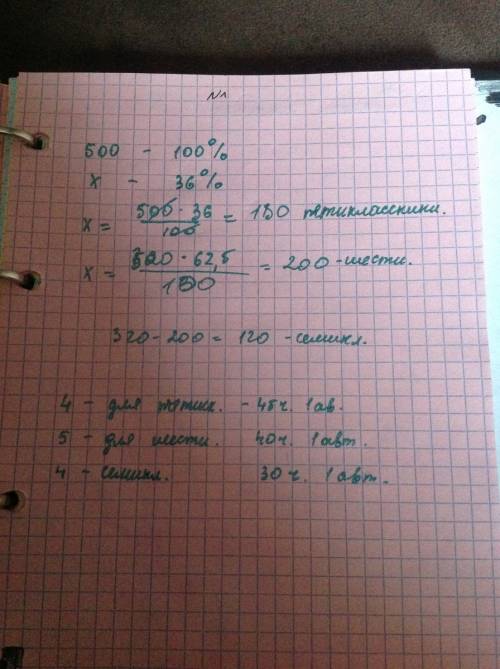 N1
500 - 100%
x - 36%
x = 500 · 36 / 100 = 180 пятиклассники.
x = 320 · 62,5 / 100 = 200 - шести.
320 - 200 = 120 - семикл.
4 - для пятикл. - 45ч. 1 ав.
5 - для шести. 40ч. 1 авт.
4 - семикл. 30 ч. 1 авт.